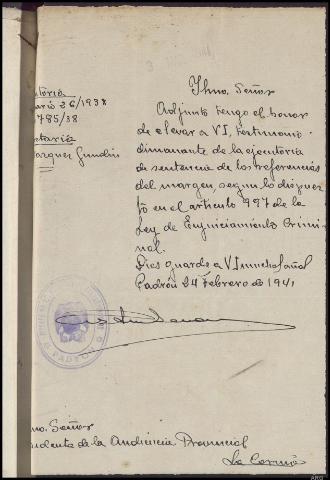 utoria
ario 36/1938
785/38
etaria
arquez Gundin
Ilmo, Señor
Adjunto tengo el honor
de elevar a VI, testimonio
dimanante de la ejecutoria
de sentencia de los referencias
del margen segun lo dispues
to en el articulo 997 de la
Ley de Enjuiciamiento Crimi
nal.
Dios guarde a VI muchos años
Padrón 24 Febrero de 1941
PADRON
mo. Señor
idente de la Audiencia Provincial
La Coruña